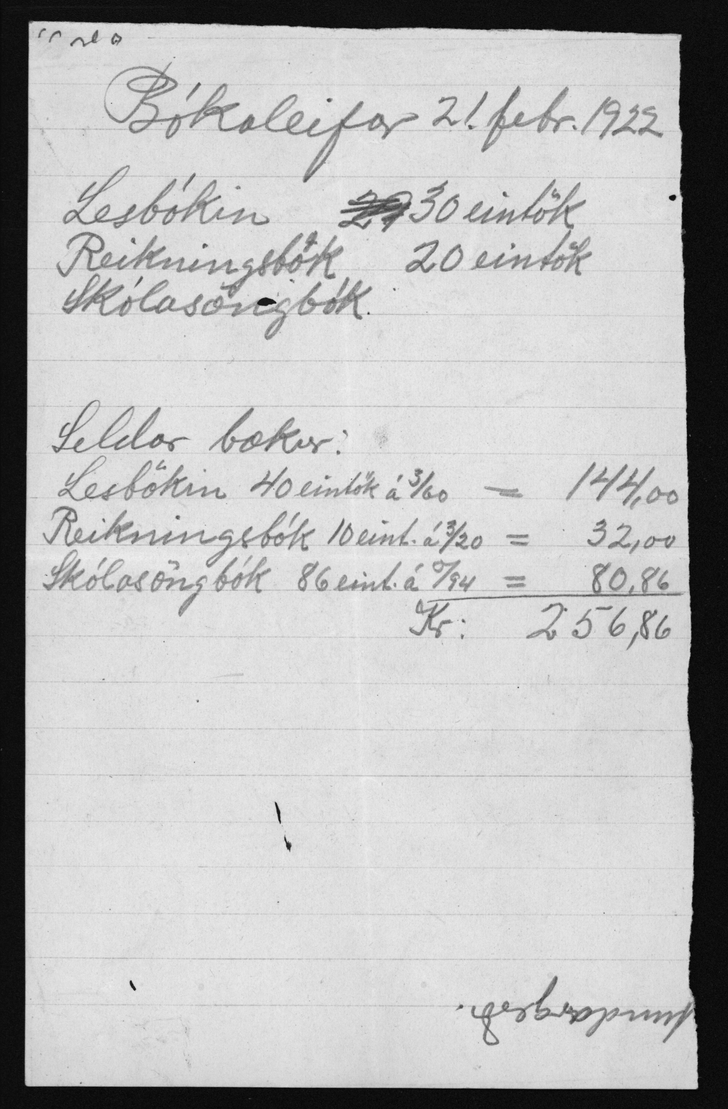 Bókaleifar 21. febr. 1922
Lesbókin 30 eintök
Reikningsbók 20 eintök
Skólasöngbók.
Seldar bækur:
Lesbókin 40 eintök á 3/60 = 144,00
Reikningsbók 10 eint. á 3/20 = 32,00
Skólasöngbók 86 eint. á 0/94 = 80,86
Kr: 256,86